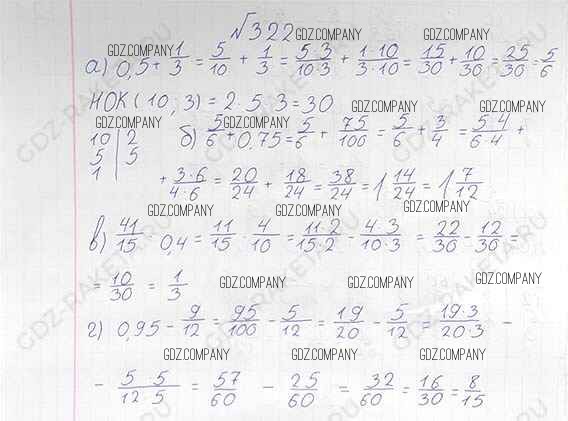 √322 GDZ.COMPANY GDZ.COMPANY
GDZ.COMPANY GDZ.COMPANY
а) 0,5 + 1/3 = 5/10 + 1/3 = 5·3/10·3 + 1·10/3·10 = 15/30 + 10/30 = 25/30 = 5/6
НОК(10, 3) = 2·5·3=30
GDZ.COMPANY GDZ.COMPANY GDZ.COMPANY
10 | 2
5 | 5
1 |
б) 5/6 + 0,75 = 5/6 + 75/100 = 5/6 + 3/4 = 5·4/6·4 +
+ 3·6/4·6 = 20/24 + 18/24 = 38/24 = 1 14/24 = 1 7/12
GDZ.COMPANY GDZ.COMPANY
в) 41/15 0,4 = 11/15 - 4/10 = 11·2/15·2 - 4·3/10·3 = 22/30 - 12/30 =
= 10/30 = 1/3
GDZ.COMPANY GDZ.COMPANY GDZ.COMPANY
г) 0,95 - 9/12 = 95/100 - 5/12 = 19/20 - 5/12 = 19·3/20·3 -
GDZ.COMPANY GDZ.COMPANY GDZ.COMPANY
- 5·5/12·5 = 57/60 - 25/60 = 32/60 = 16/30 = 8/15
GDZ-RAKETA.RU